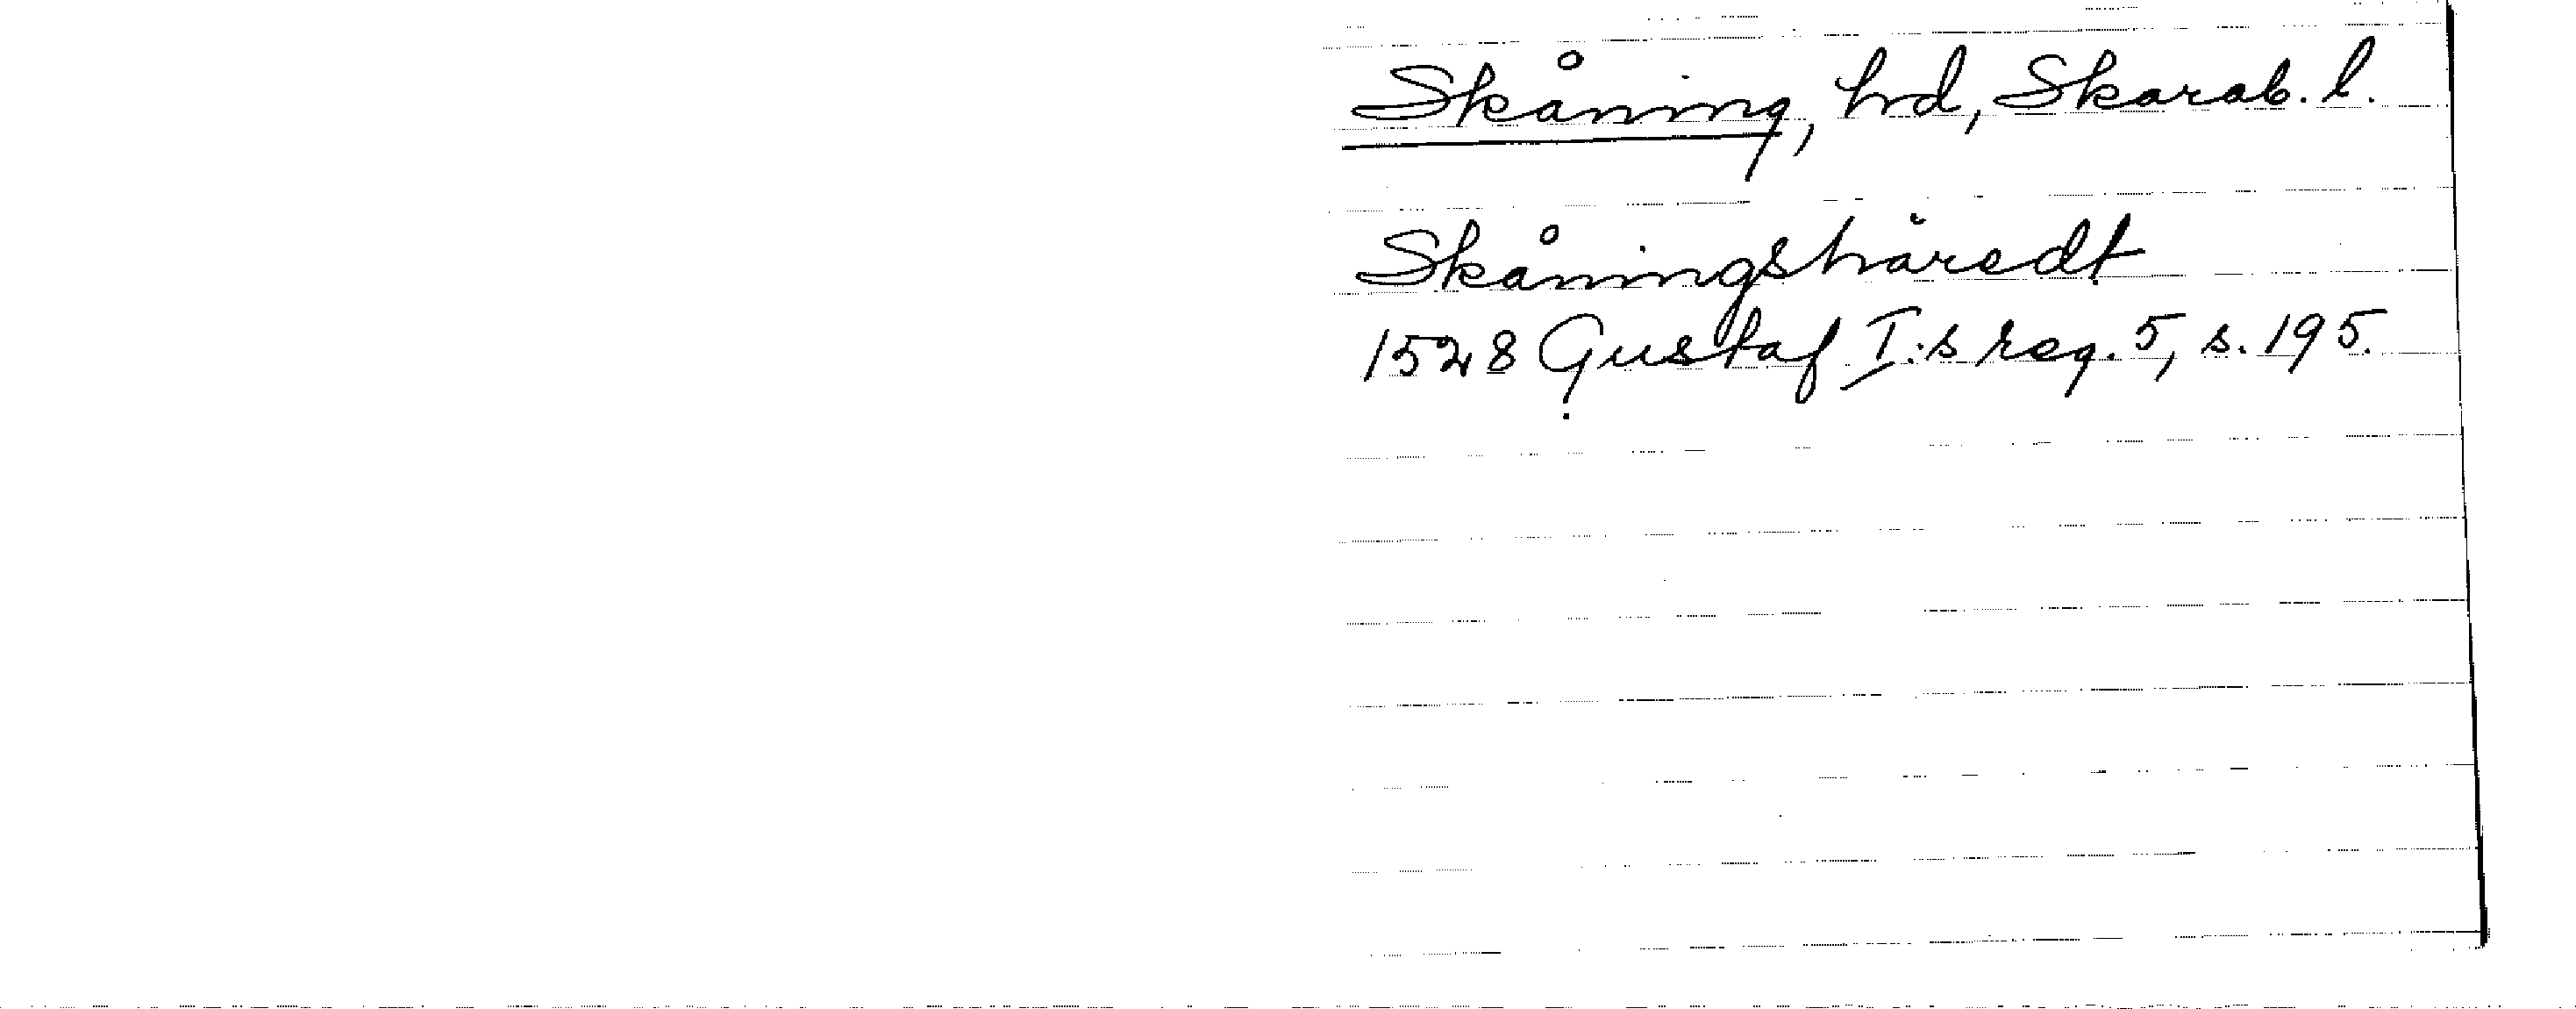 Skåning, hd, Skarab. l.
Skåningshäredt
1528 Gustaf I:s reg. 5, s. 195.